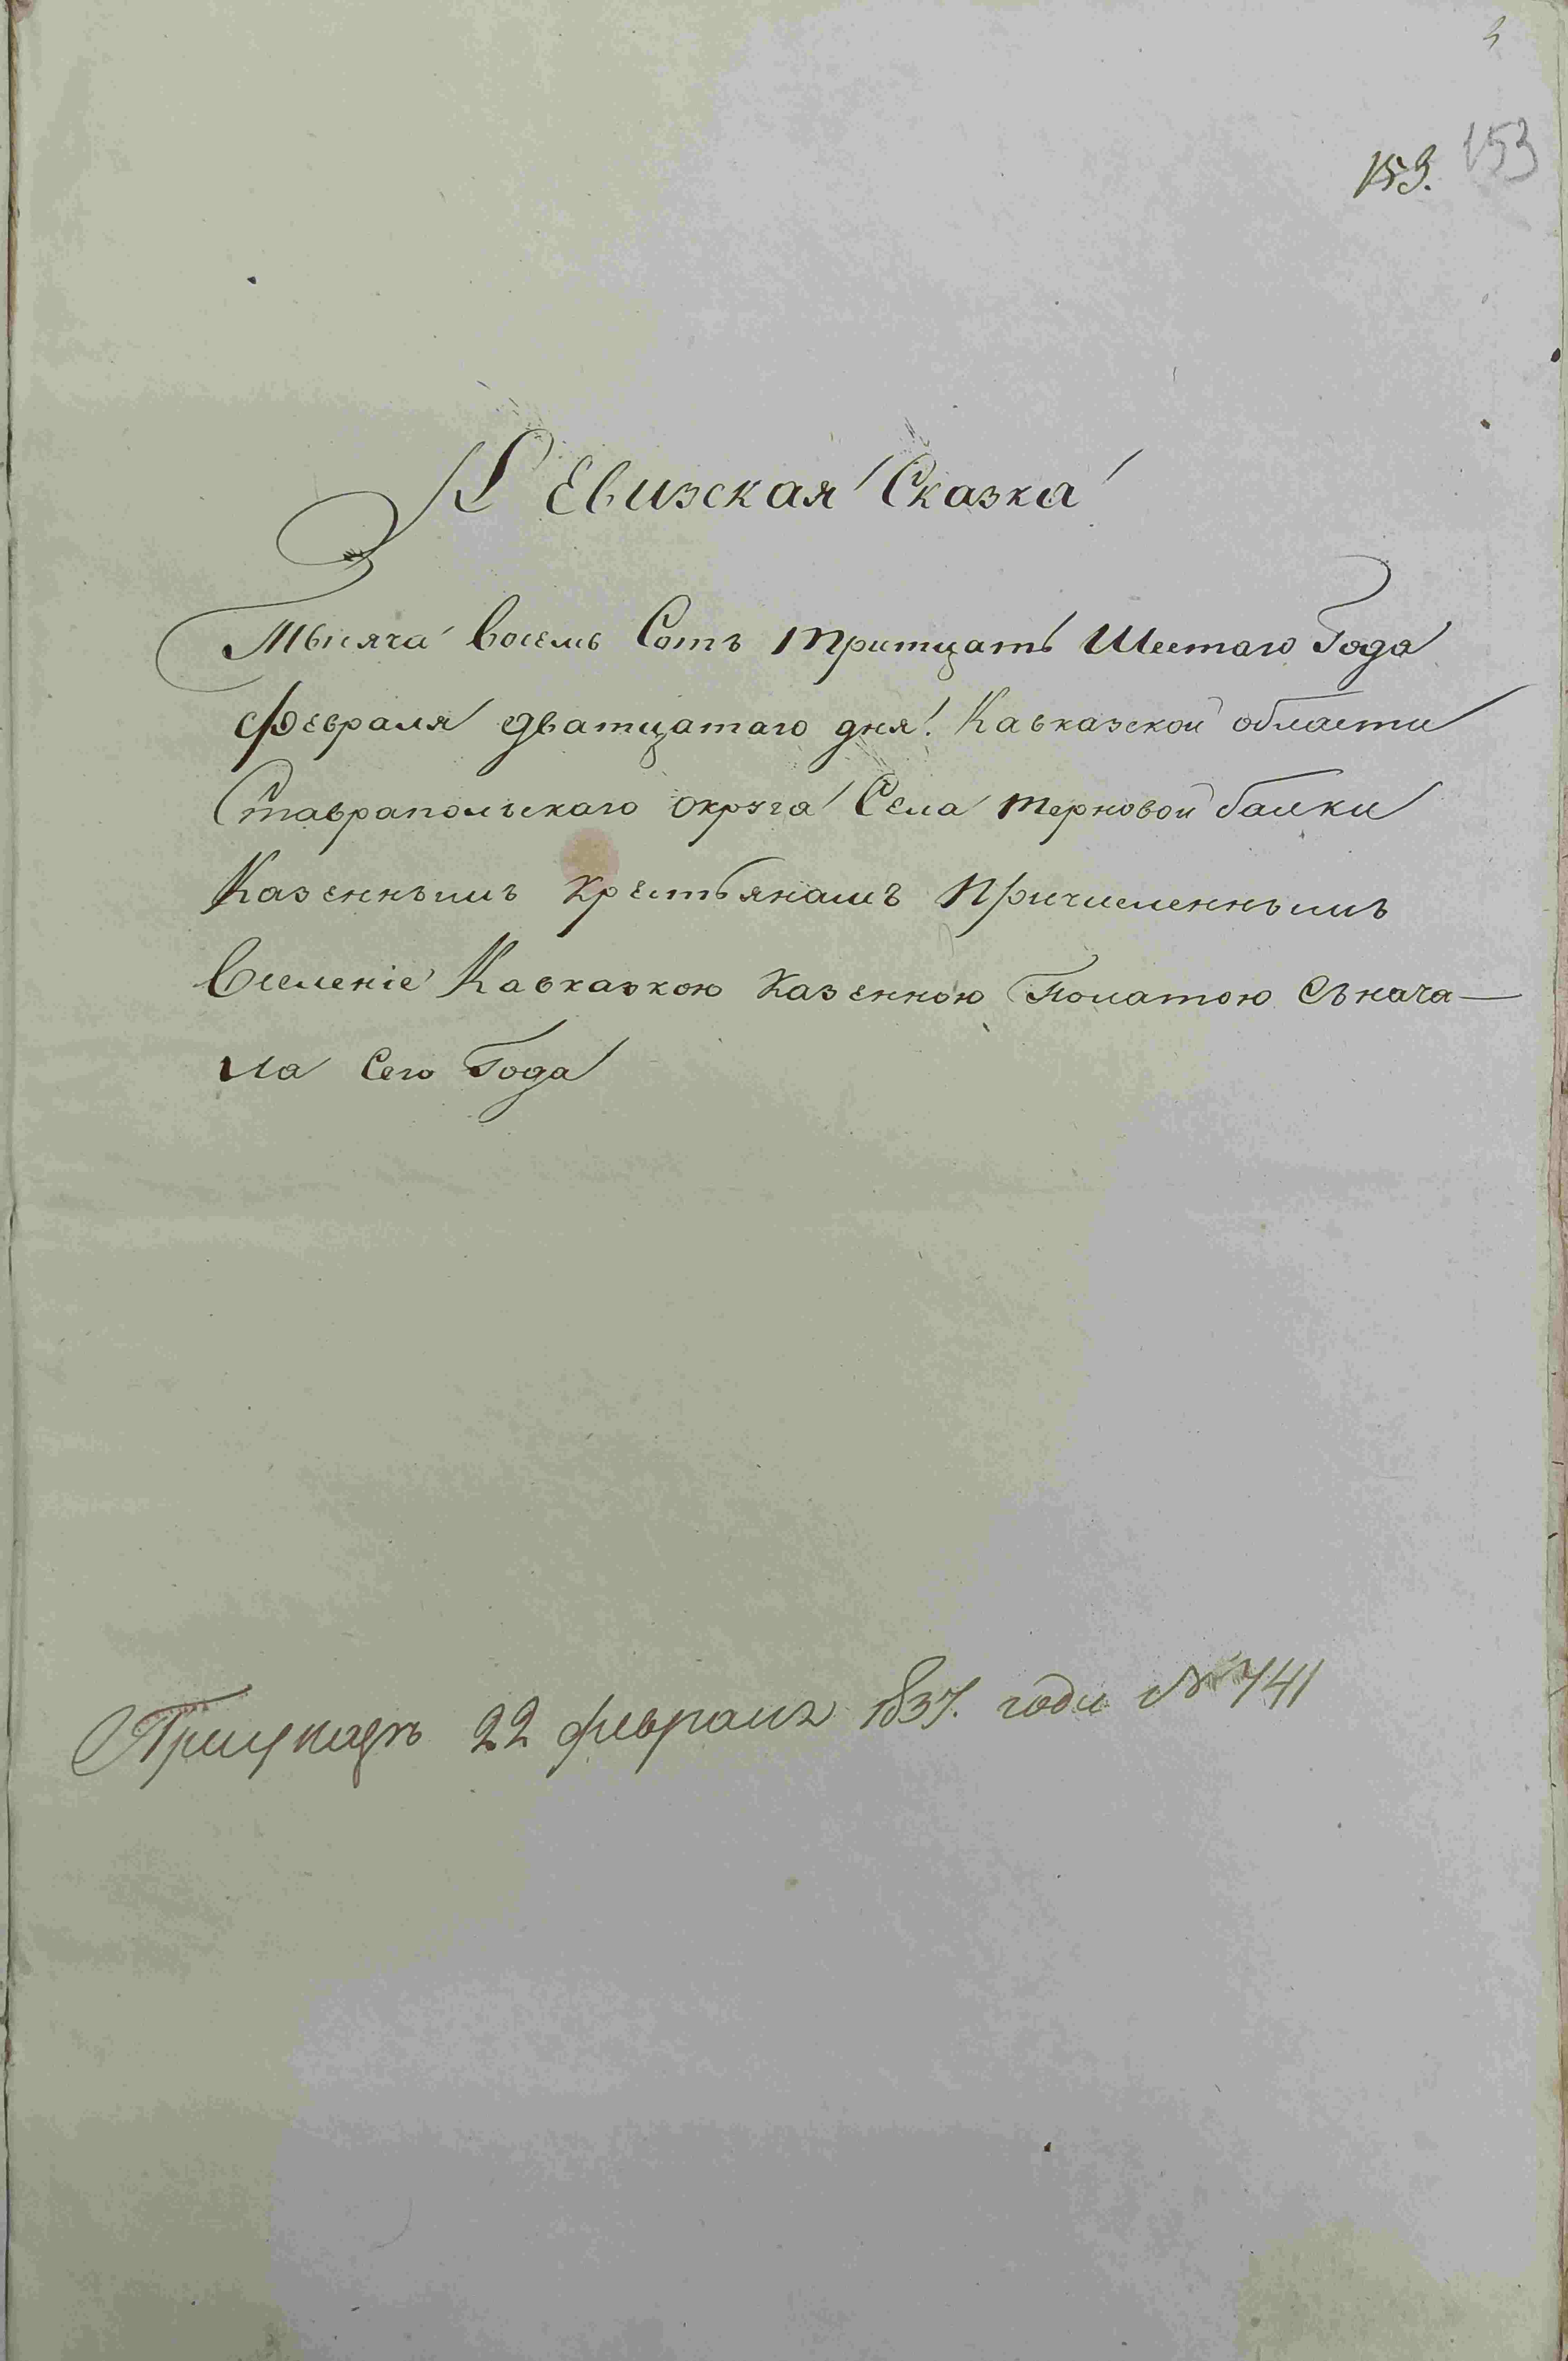 153. 153
Ревизская Сказка
Тысяча восемь Сотъ тритцать Шестаго Года
февраля дватцатаго дня. Кавказской области
Ставрапольскаго округа Села терновой балки
Казеннымъ крестьянамъ причисленнымъ
Вселеніе Кавказкою Казенною Полатою съ нача-
ла Сего Года
22 февраля 1837. года № 741